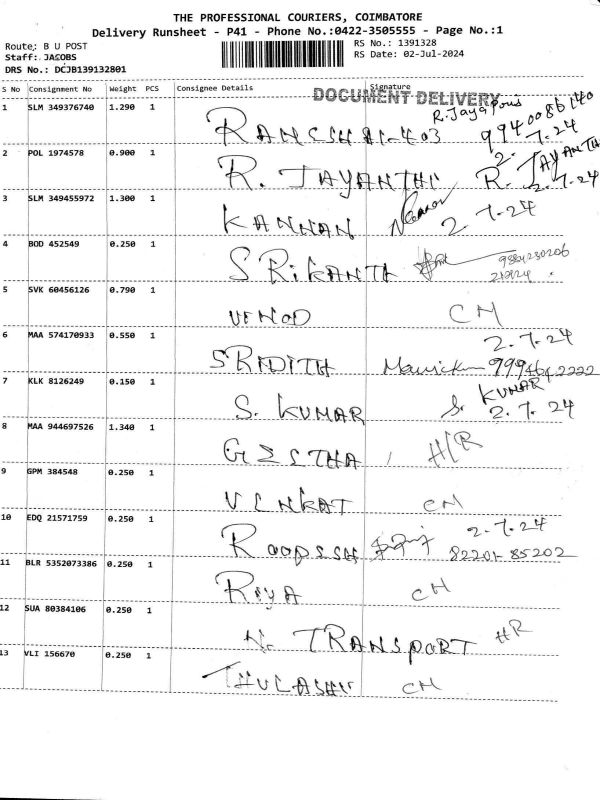 THE PROFESSIONAL COURIERS, COIMBATORE
Delivery Runsheet - P41 - Phone No.:0422-3505555 - Page No.:1
Route: B U POST
Staff: JACOBS
DRS No.: DCJB139132801
RS No.: 1391328
RS Date: 02-Jul-2024
S No Consignment No Weight PCS Consignee Details Signature
DOCUMENT DELIVERY
1 SLM 349376740 1.290 1 9940086140
2.7.24
2 POL 1974578 0.900 1 R. JAYANTHI R. JAYANTH
2.7.24
3 SLM 349455972 1.300 1 KANNAN
2.7.24
4 BOD 452549 0.250 1 SRIKANTH 9884230206
5 SVK 60456126 0.790 1 VINOD CH
2.7.24
6 MAA 574170933 0.550 1 SRIDITH
7 KLK 8126249 0.150 1 S. KUMAR S. KUMAR
2.7.24
8 MAA 944697526 1.340 1 GEETHA H/R
9 GPM 384548 0.250 1 VENKAT CH
10 EDQ 21571759 0.250 1 ROOPESH 2.7.24
82201-85202
11 BLR 5352073386 0.250 1 RIYA CH
12 SUA 80384106 0.250 1 N. TRANSPORT HR
13 VLI 156670 0.250 1 THULASHI CH